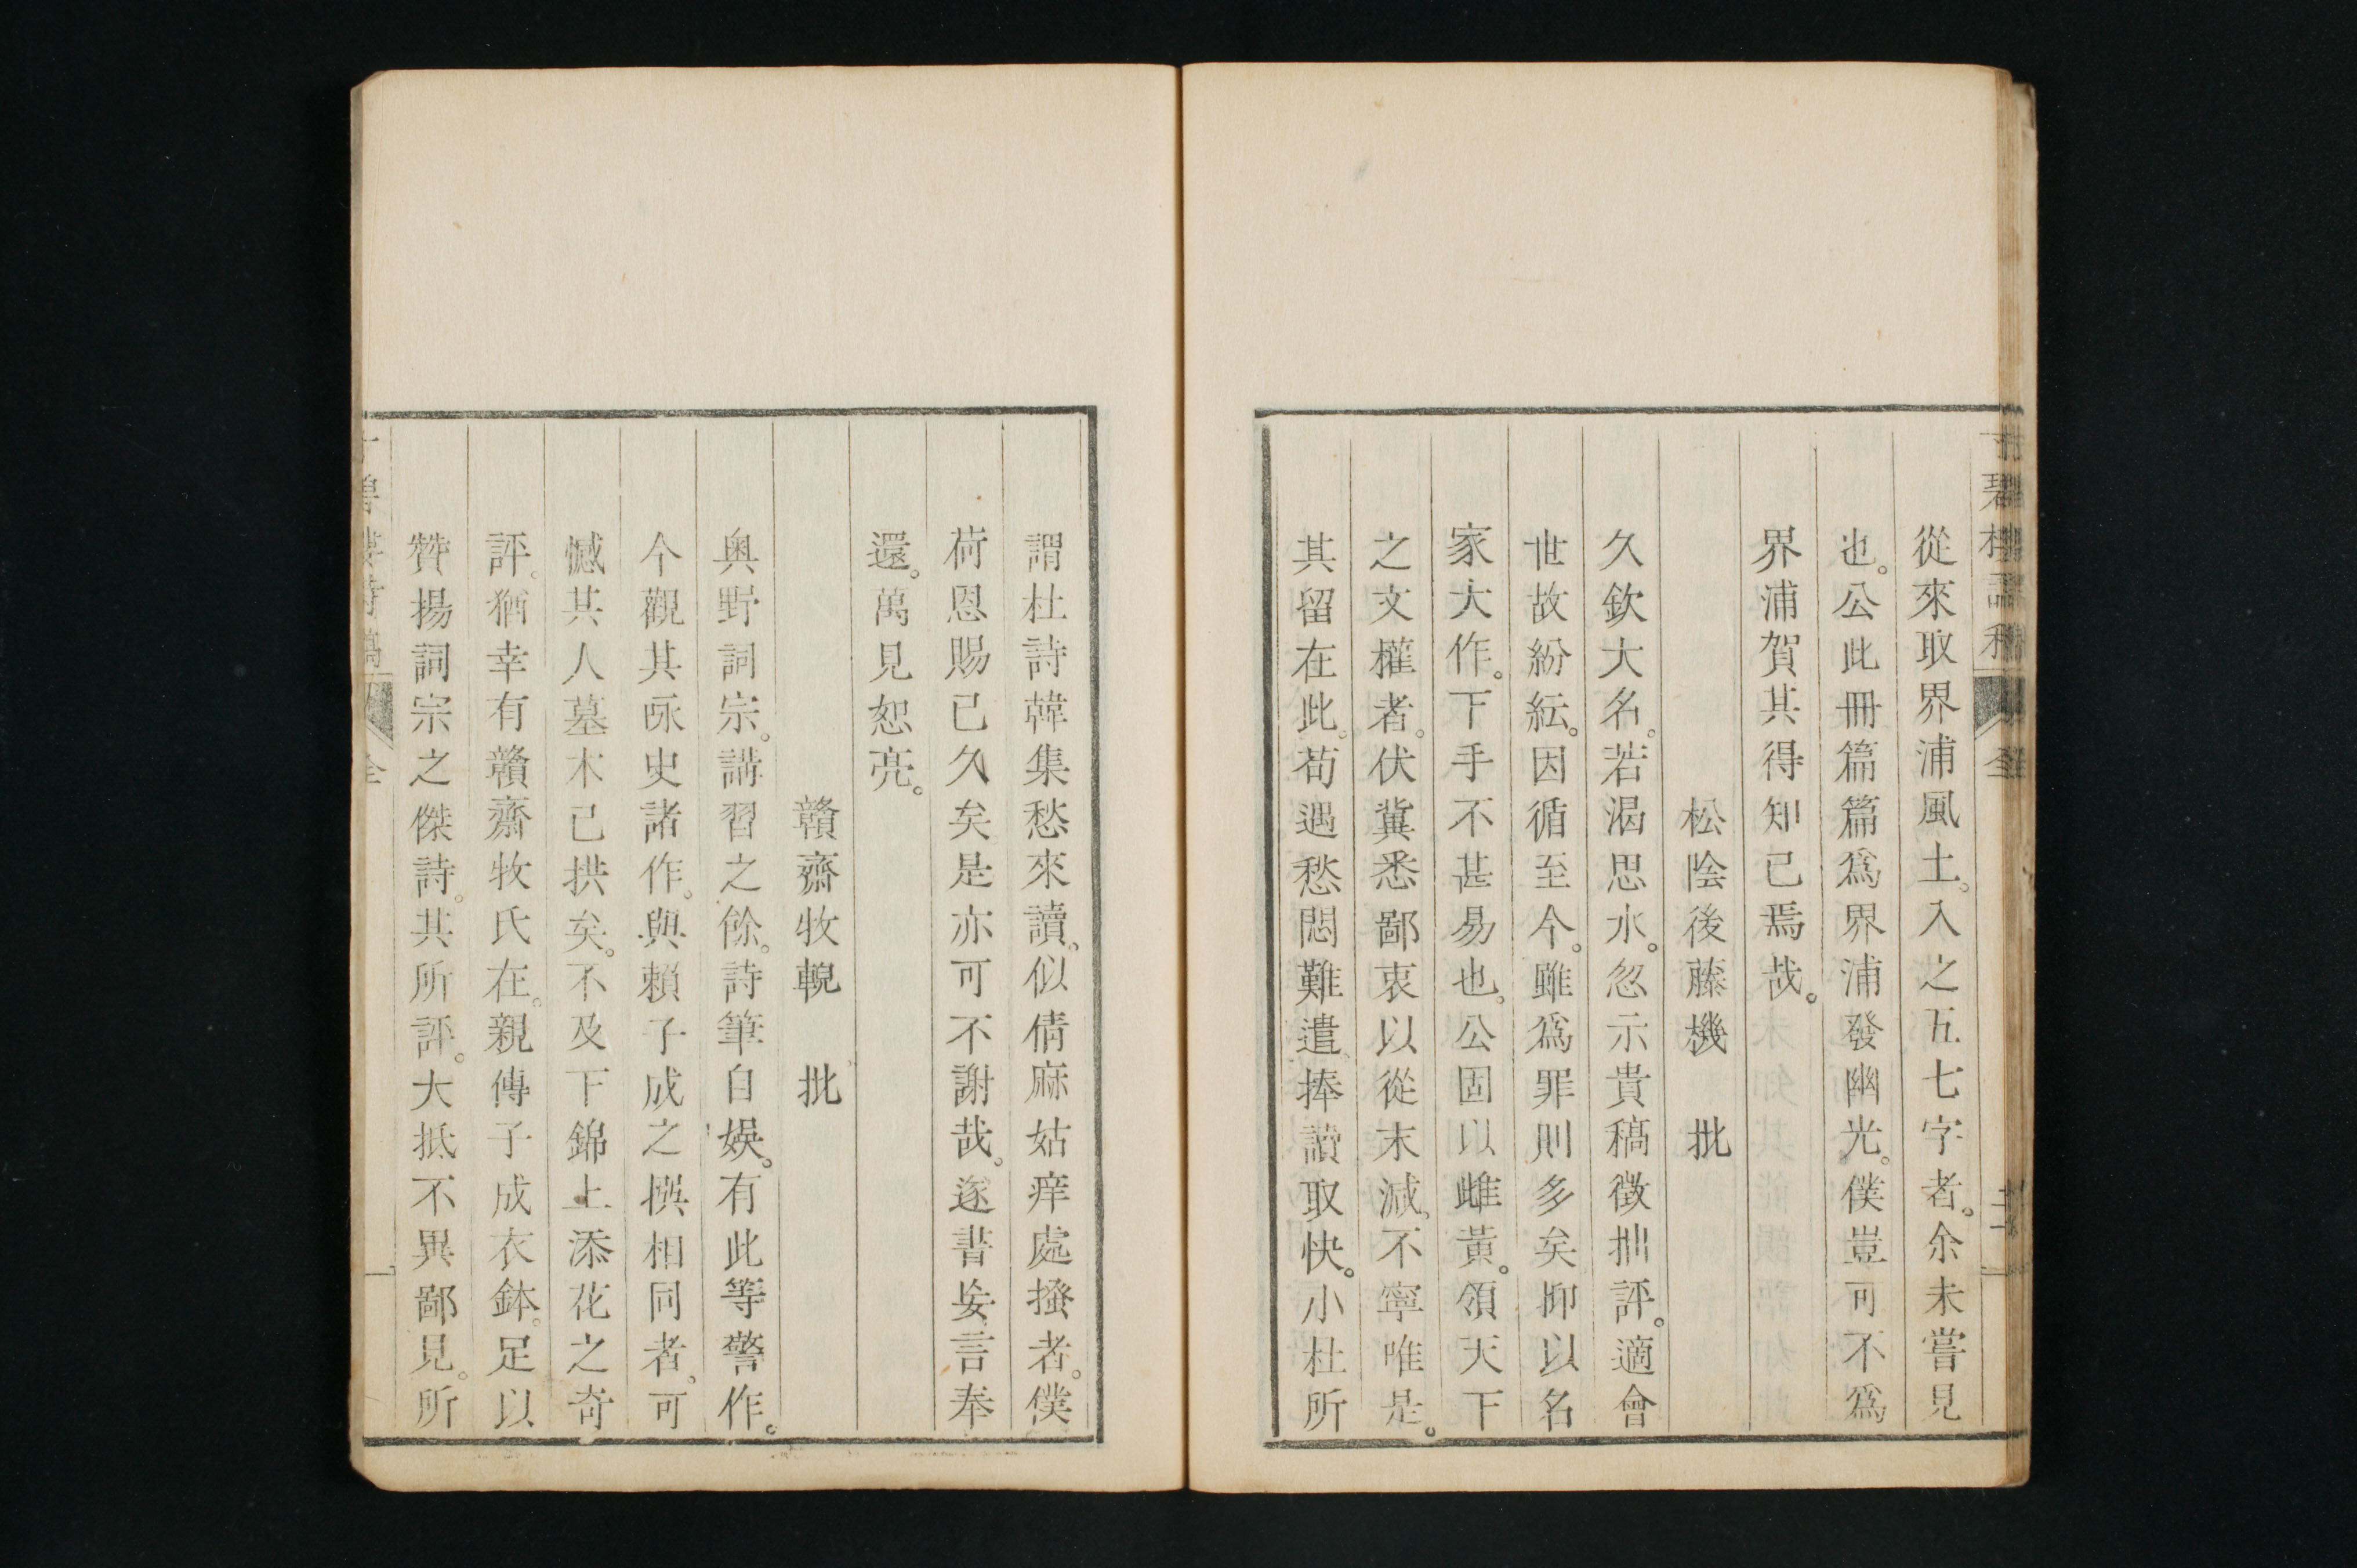 從來取界浦風土。入之五七字者。余未嘗見
也。公此冊篇篇爲界浦發幽光。僕豈可不爲
界浦賀其得知已焉哉。
松陰後藤機 批
久欽大名。若渴思水。忽示貴稿徵拙評。適會
世故紛紜。因循至今。雖爲罪則多矣抑以名
家大作。下手不甚易也。公固以雌黃。領天下
之文權者。伏冀悉鄙衷以從末減。不寧唯是。
其留在此。苟遇愁悶難遣捧讀取快。小杜所
謂杜詩韓集愁來讀。似倩麻姑痒處搔者。僕
荷恩賜已久矣是亦可不謝哉。逐書妄言奉
還。萬見恕亮。
贛齋牧輗 批
奥野詞宗。講習之餘。詩筆自娛。有此等警作。
今觀其詠史諸作。與賴子成之撰相同者。可
憾其人墓木已拱矣。不及下錦上添花之奇
評。猶幸有贛齋牧氏在。親傳子成衣鉢。足以
贊揚詞宗之傑詩。其所評。大抵不異鄙見。所
全